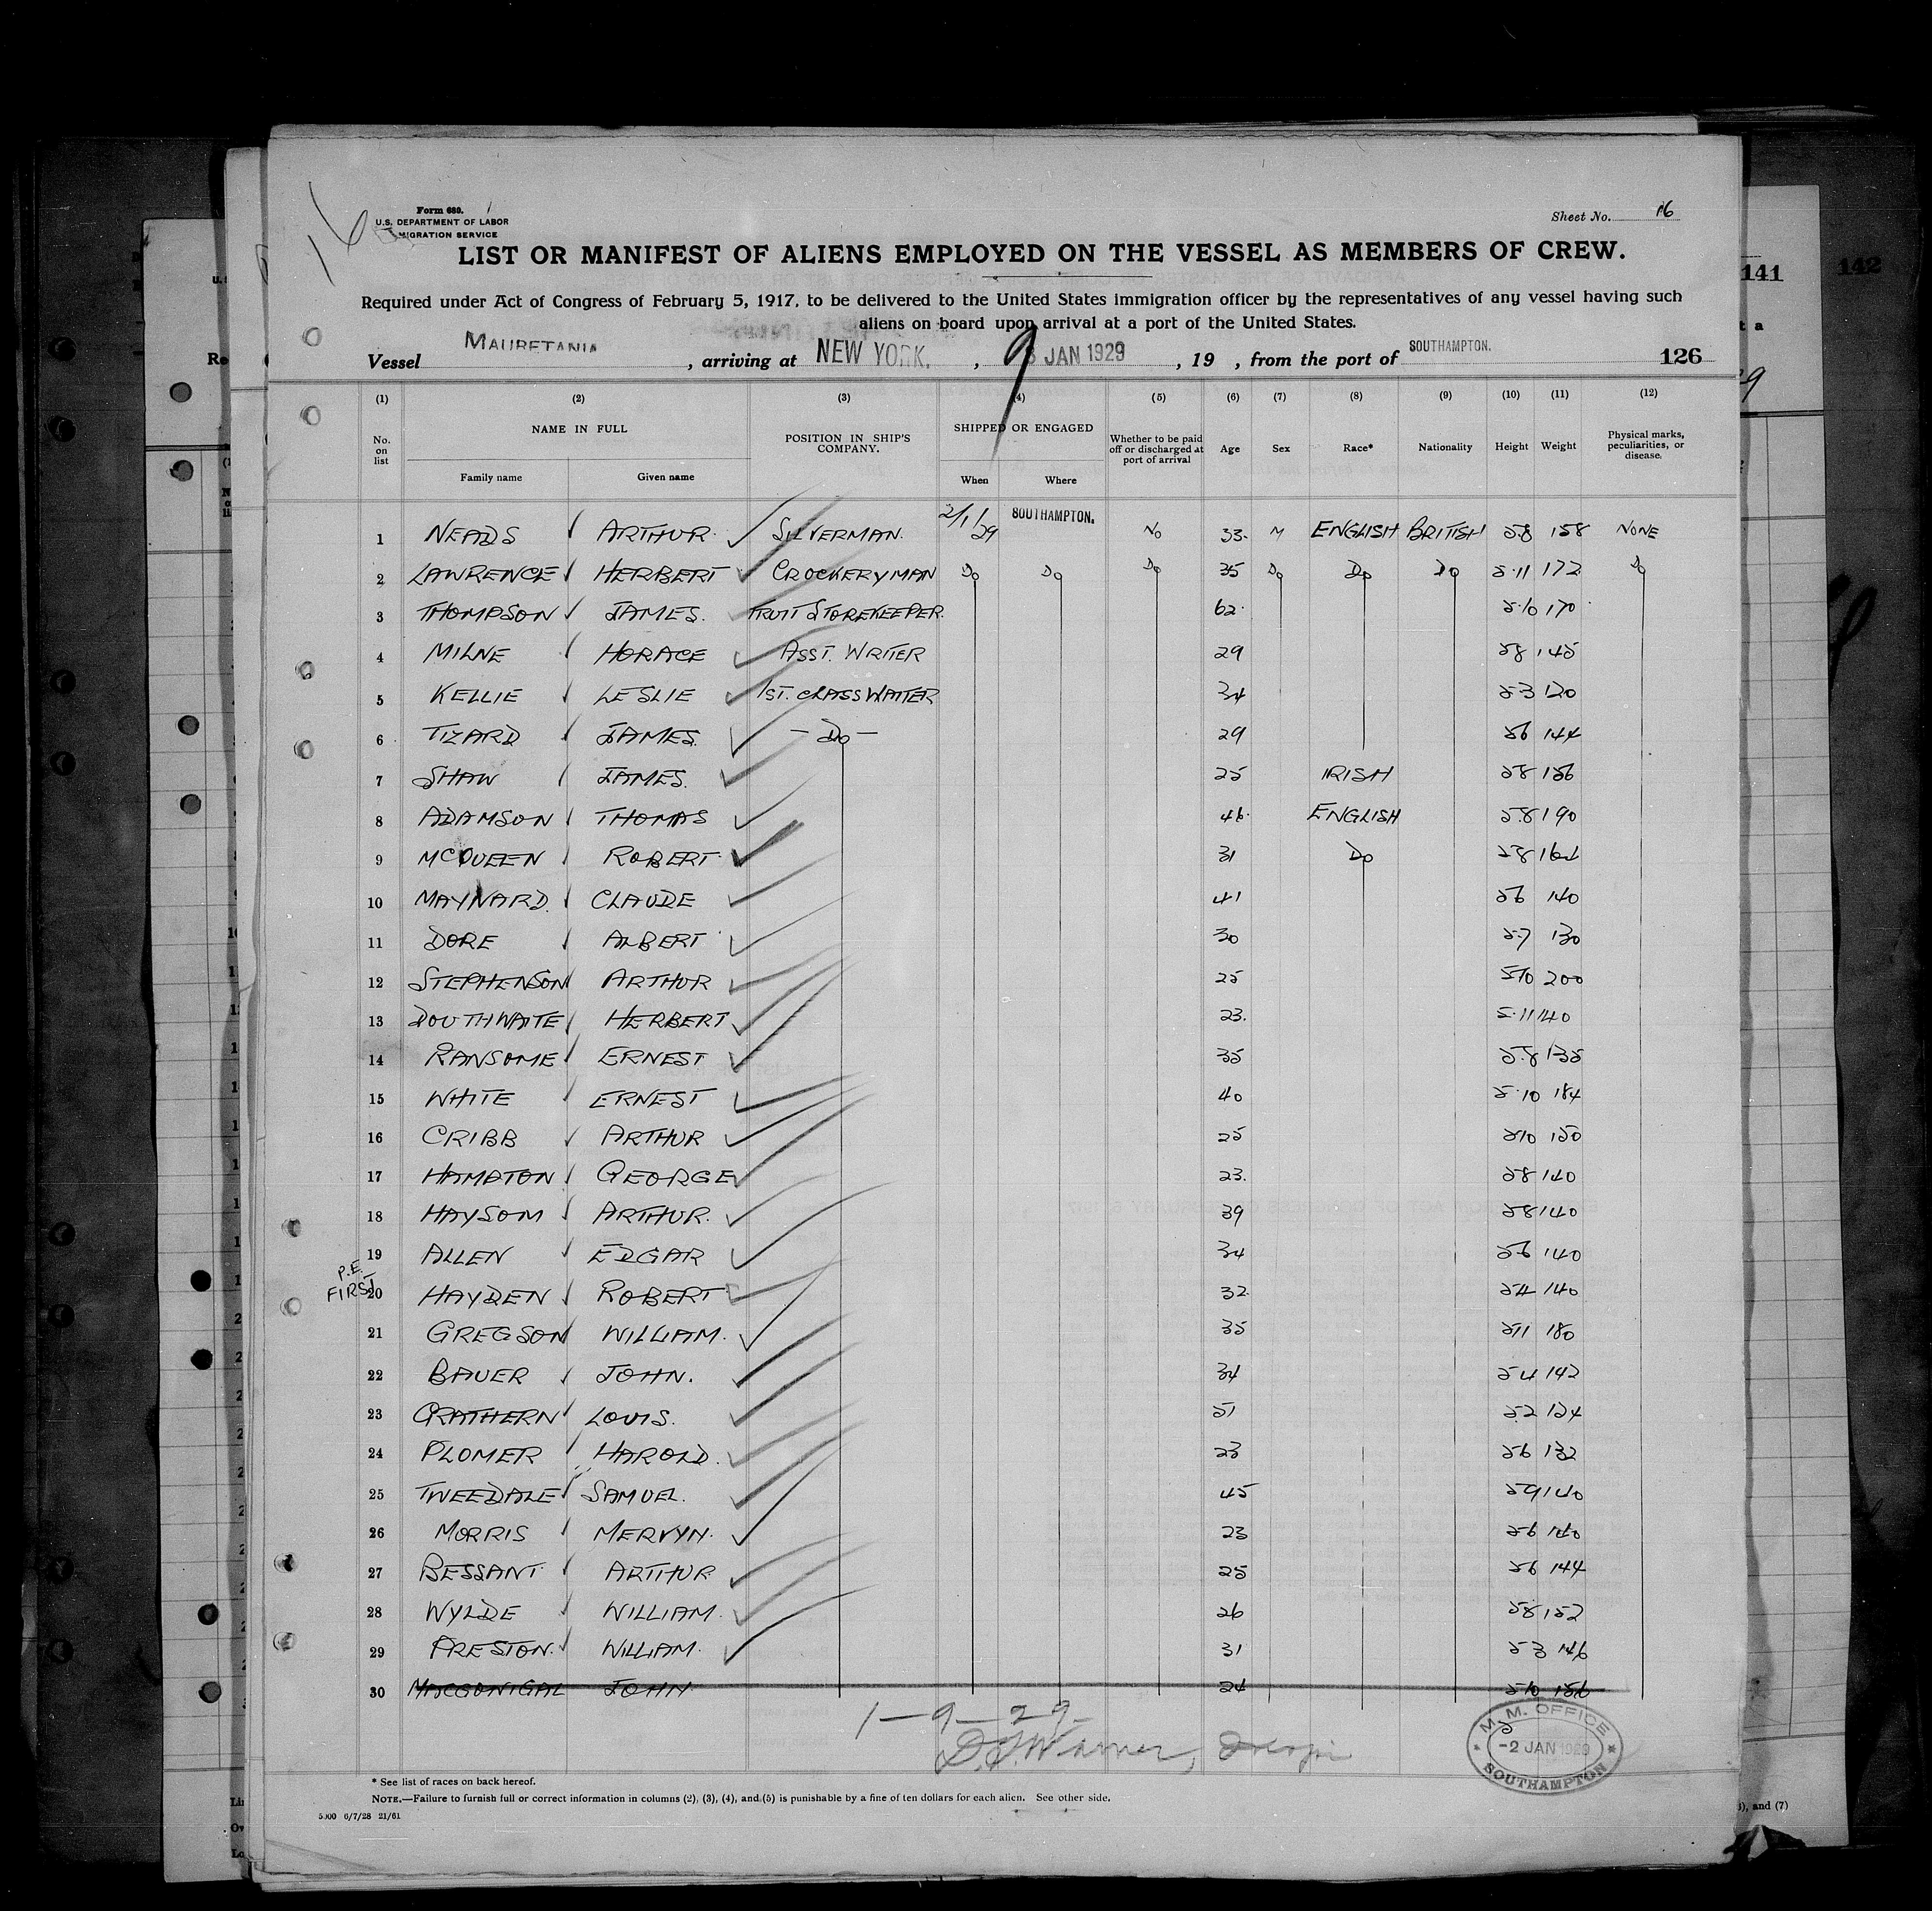 Form 680.
U.S. DEPARTMENT OF LABOR
IMMIGRATION SERVICE
Sheet No. 16
LIST OR MANIFEST OF ALIENS EMPLOYED ON THE VESSEL AS MEMBERS OF CREW.
Required under Act of Congress of February 5, 1917, to be delivered to the United States immigration officer by the representatives of any vessel having such
aliens on board upon arrival at a port of the United States.
Vessel MAURETANIA, arriving at NEW YORK, 9 JAN 1929, 19 , from the port of SOUTHAMPTON. 126
(1) (2) (3) (4) (5) (6) (7) (8) (9) (10) (11) (12)
No. on list NAME IN FULL POSITION IN SHIP'S COMPANY. SHIPPED OR ENGAGED Whether to be paid off or discharged at port of arrival Age Sex Race* Nationality Height Weight Physical marks, peculiarities, or disease.
Family name Given name When Where
1 NEADS ARTHUR. SILVERMAN. 2/1/29 SOUTHAMPTON. No 33. M ENGLISH BRITISH 5.8 158 NONE
2 LAWRENCE HERBERT CROCKERYMAN Do Do Do 35 Do Do Do 5.11 172 Do
3 THOMPSON JAMES. FRUIT STOREKEEPER. 62. 5.10 170
4 MILNE HORACE ASST. WRITER 29 58 145
5 KELLIE LESLIE 1ST. CLASS WAITER 34 53 120
6 TIZARD JAMES. -Do- 29 56 144
7 SHAW JAMES. 25 IRISH 58 156
8 ADAMSON THOMAS 46. ENGLISH 5.8 190
9 MCQUEEN ROBERT. 31 Do 58
10 MAYNARD. CLAUDE 41 56 140
11 DORE ALBERT 30 5.7 130
12 STEPHENSON ARTHUR 25 510 200
13 DOUTHWAITE HERBERT 23. 5.11 140
14 RANSOME ERNEST 35 5.8 135
15 WHITE ERNEST 40 5.10 184
16 CRIBB ARTHUR 25 510 150
17 HAMPTON GEORGE 23. 58 140
18 HAYSOM ARTHUR. 39 58 140
19 ALLEN EDGAR 34 56 140
P.E. FIRST
20 HAYDEN ROBERT 32. 54 140
21 GREGSON WILLIAM. 35 511 180
22 BAUER JOHN. 34 54 142
23 GRATHERN LOUIS. 51 5.2 124
24 PLOMER HAROLD. 23 56 132
25 TWEEDALE SAMUEL. 45 59 140
26 MORRIS MERVYN. 23 56 140
27 BESSANT. ARTHUR 25 56 144
28 WYLDE WILLIAM. 26 58 152
29 PRESTON. WILLIAM. 31 53 146
30 MACGONIGAL JOHN 24 510 156
1-9-29
M.M. OFFICE
-2 JAN 1929
SOUTHAMPTON
* See list of races on back hereof.
NOTE.—Failure to furnish full or correct information in columns (2), (3), (4), and (5) is punishable by a fine of ten dollars for each alien. See other side.
5000 6/7/28 21/61
141
142
), and (7)